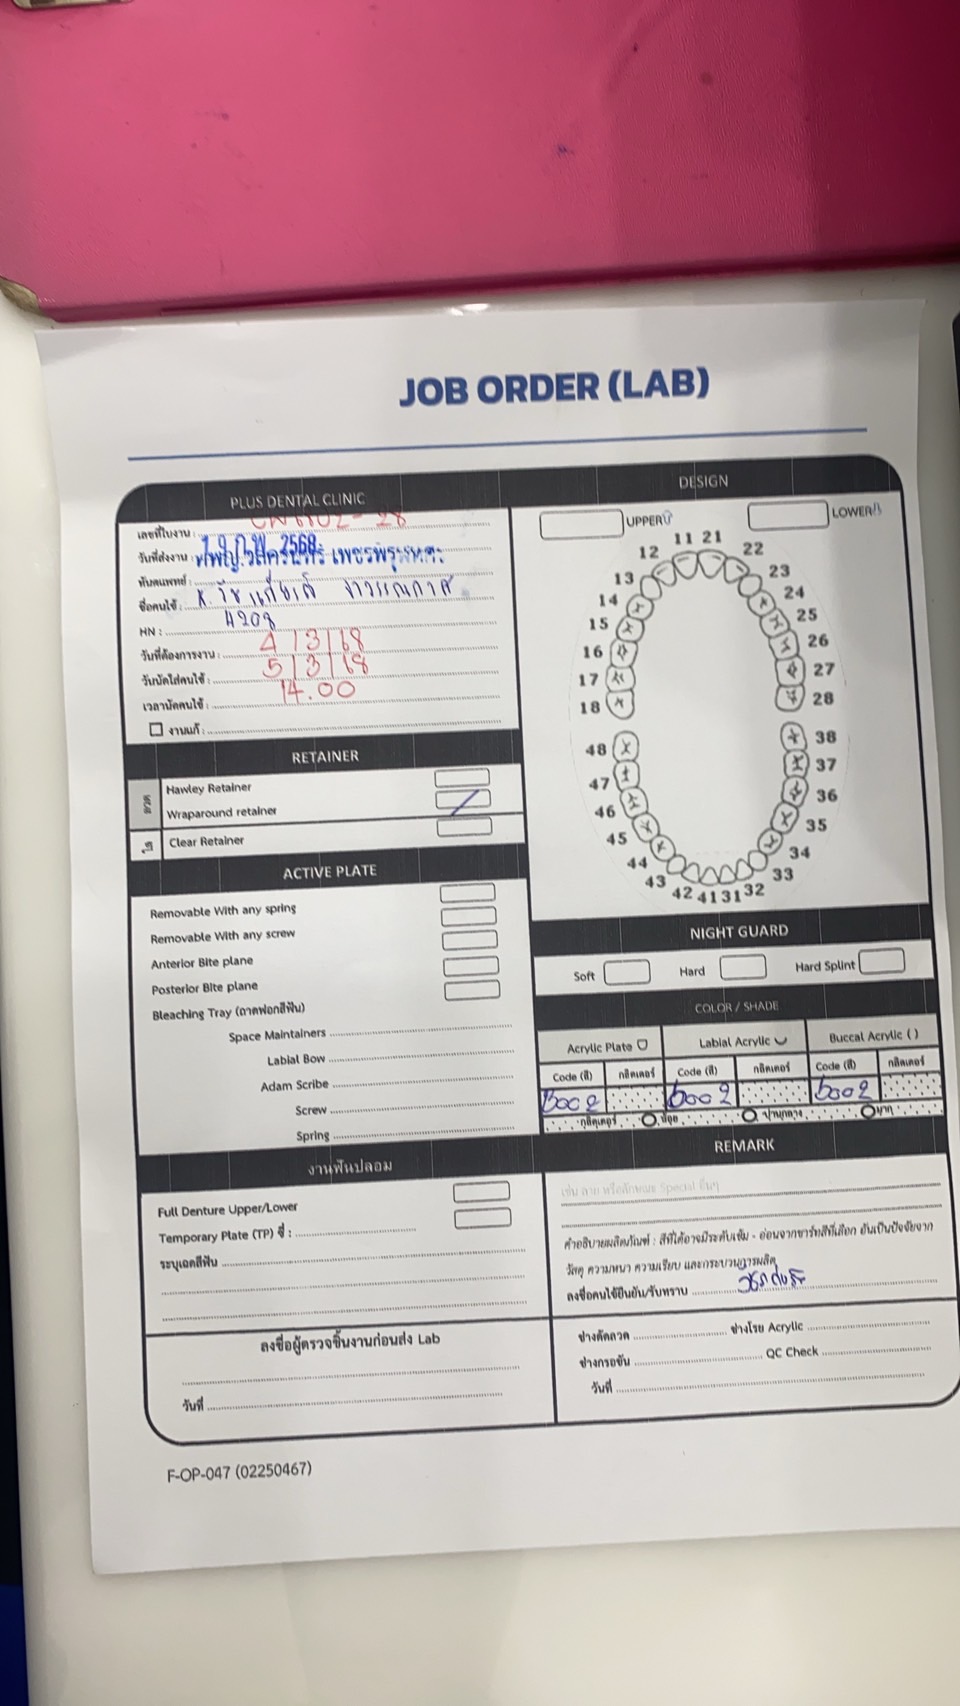 JOB ORDER (LAB)
PLUS DENTAL CLINIC
เลขที่ใบงาน : 6802-28
วันที่ส่งงาน : 2568
ทันตแพทย์ :
ชื่อคนไข้ :
HN : 4208
วันที่ต้องการงาน : 4/3/68
วันนัดใส่คนไข้ : 5/3/68
เวลานัดคนไข้ : 14.00
งานแก้ :
RETAINER
ลวด
Hawley Retainer
Wraparound retainer
ใส
Clear Retainer
ACTIVE PLATE
Removable With any spring
Removable With any screw
Anterior Bite plane
Posterior Bite plane
Bleaching Tray (ถาดฟอกสีฟัน)
Space Maintainers
Labial Bow
Adam Scribe
Screw
Spring
งานฟันปลอม
Full Denture Upper/Lower
Temporary Plate (TP) ซี่ :
ระบุเฉดสีฟัน
ลงชื่อผู้ตรวจชิ้นงานก่อนส่ง Lab
วันที่
DESIGN
UPPER
LOWER
11 21
12 22
13 23
14 24
15 25
16 26
17 27
18 28
48 38
47 37
46 36
45 35
44 34
43 33
42 41 31 32
NIGHT GUARD
Soft Hard Hard Splint
COLOR / SHADE
Acrylic Plate Labial Acrylic Buccal Acrylic ( )
Code (สี) กลิตเตอร์ Code (สี) กลิตเตอร์ Code (สี) กลิตเตอร์
B002 b002 b002
กลิตเตอร์ น้อย ปานกลาง มาก
REMARK
เช่น ลาย หรือลักษณะ Special อื่นๆ
คำอธิบายผลิตภัณฑ์ : สีที่ได้อาจมีระดับเข้ม - อ่อนจากชาร์ทสีที่เลือก อันเป็นปัจจัยจาก
วัสดุ ความหนา ความเรียบ และกระบวนการผลิต
ลงชื่อคนไข้ยืนยัน/รับทราบ
ช่างดัดลวด ช่างโรย Acrylic
ช่างกรอขัน QC Check
วันที่
F-OP-047 (02250467)